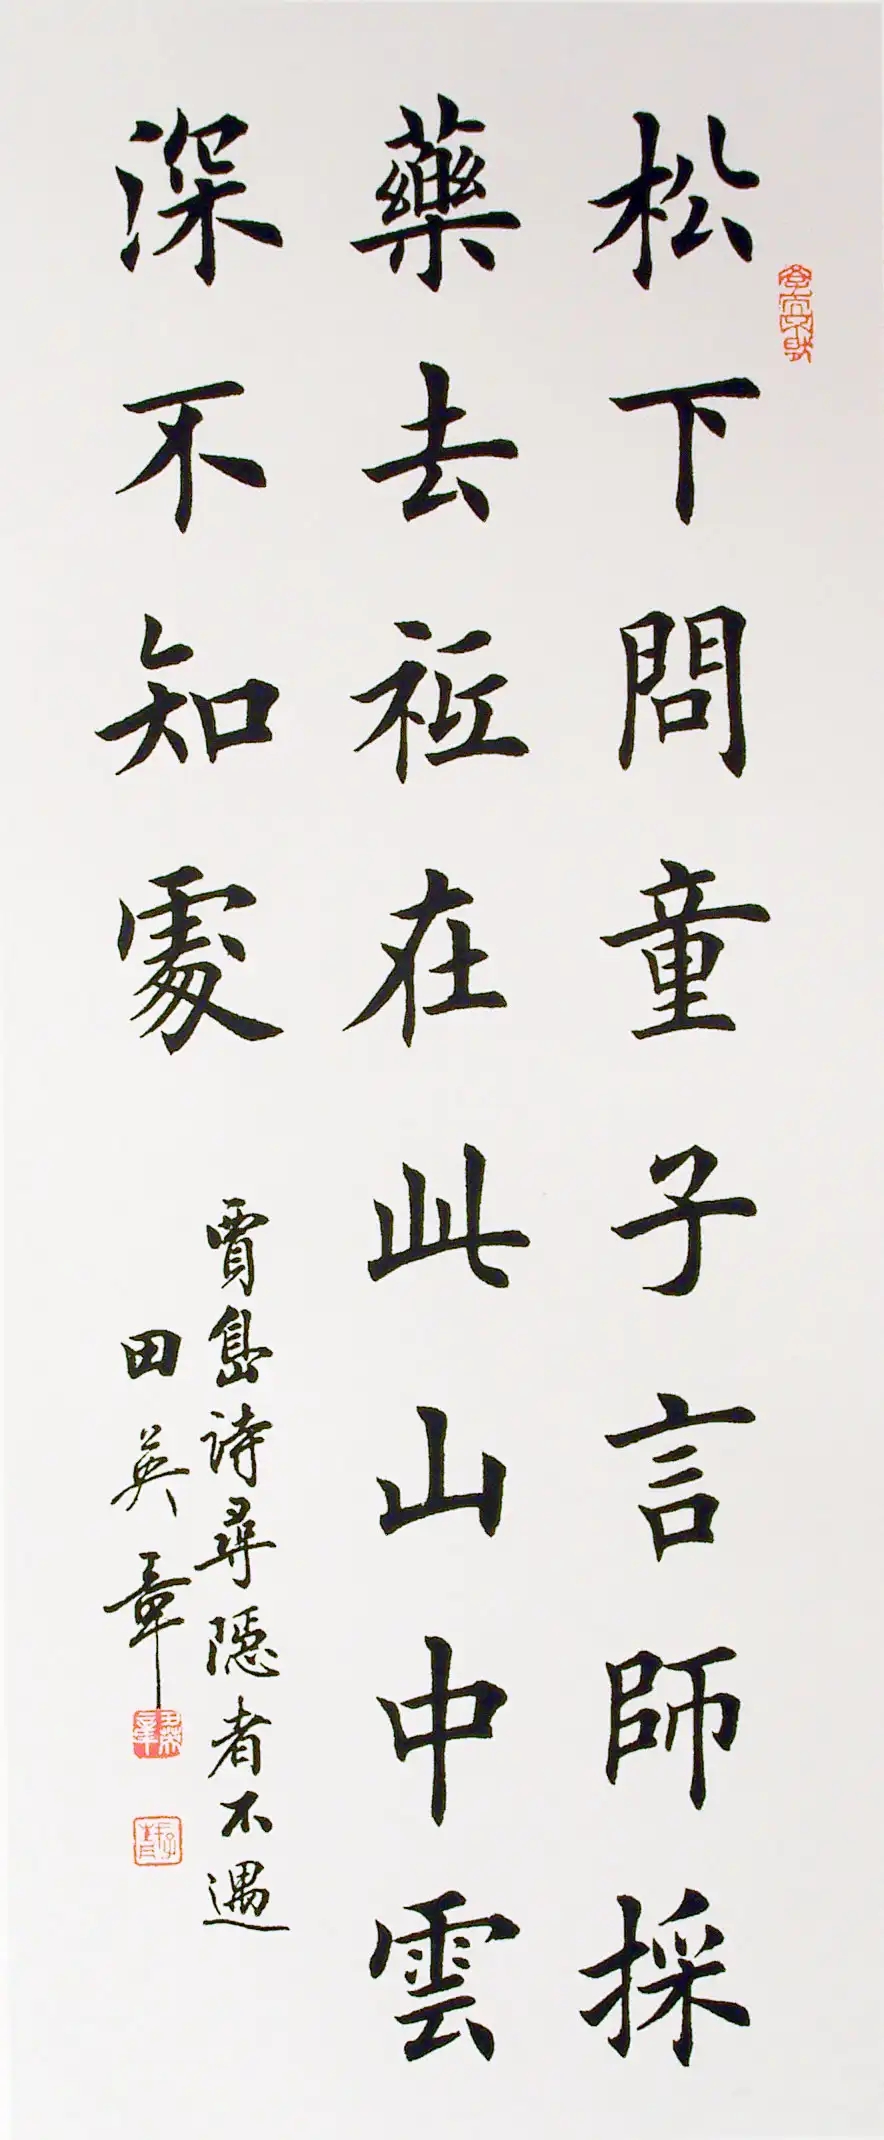 松下問童子言師採
藥去秪在此山中雲
深不知處
賈島詩尋隱者不遇
田英章